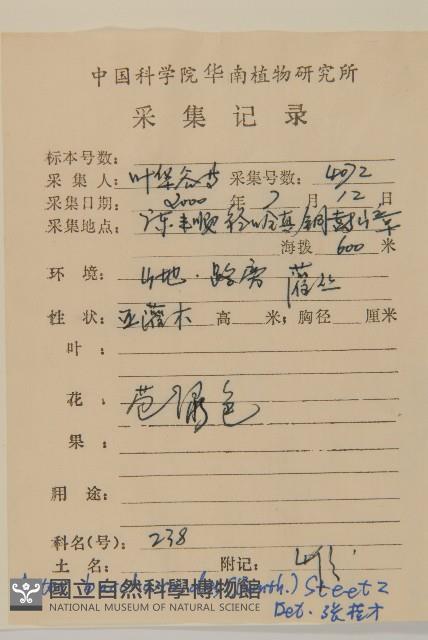 中国科学院华南植物研究所
采集记录
标本号数:
采集人: 叶华谷 采集号数: 4072
采集日期: 2000 年 7 月 12 日
采集地点: 丰顺
海拨 600 米
环境: 山地·路旁 灌丛
性状: 亚灌木 高 米; 胸径 厘米
叶:
花: 苞绿色
果:
用途:
科名(号): 238
土名: 附记:
Steetz
國立自然科學博物館
NATIONAL MUSEUM OF NATURAL SCIENCE
Det. 张桂才